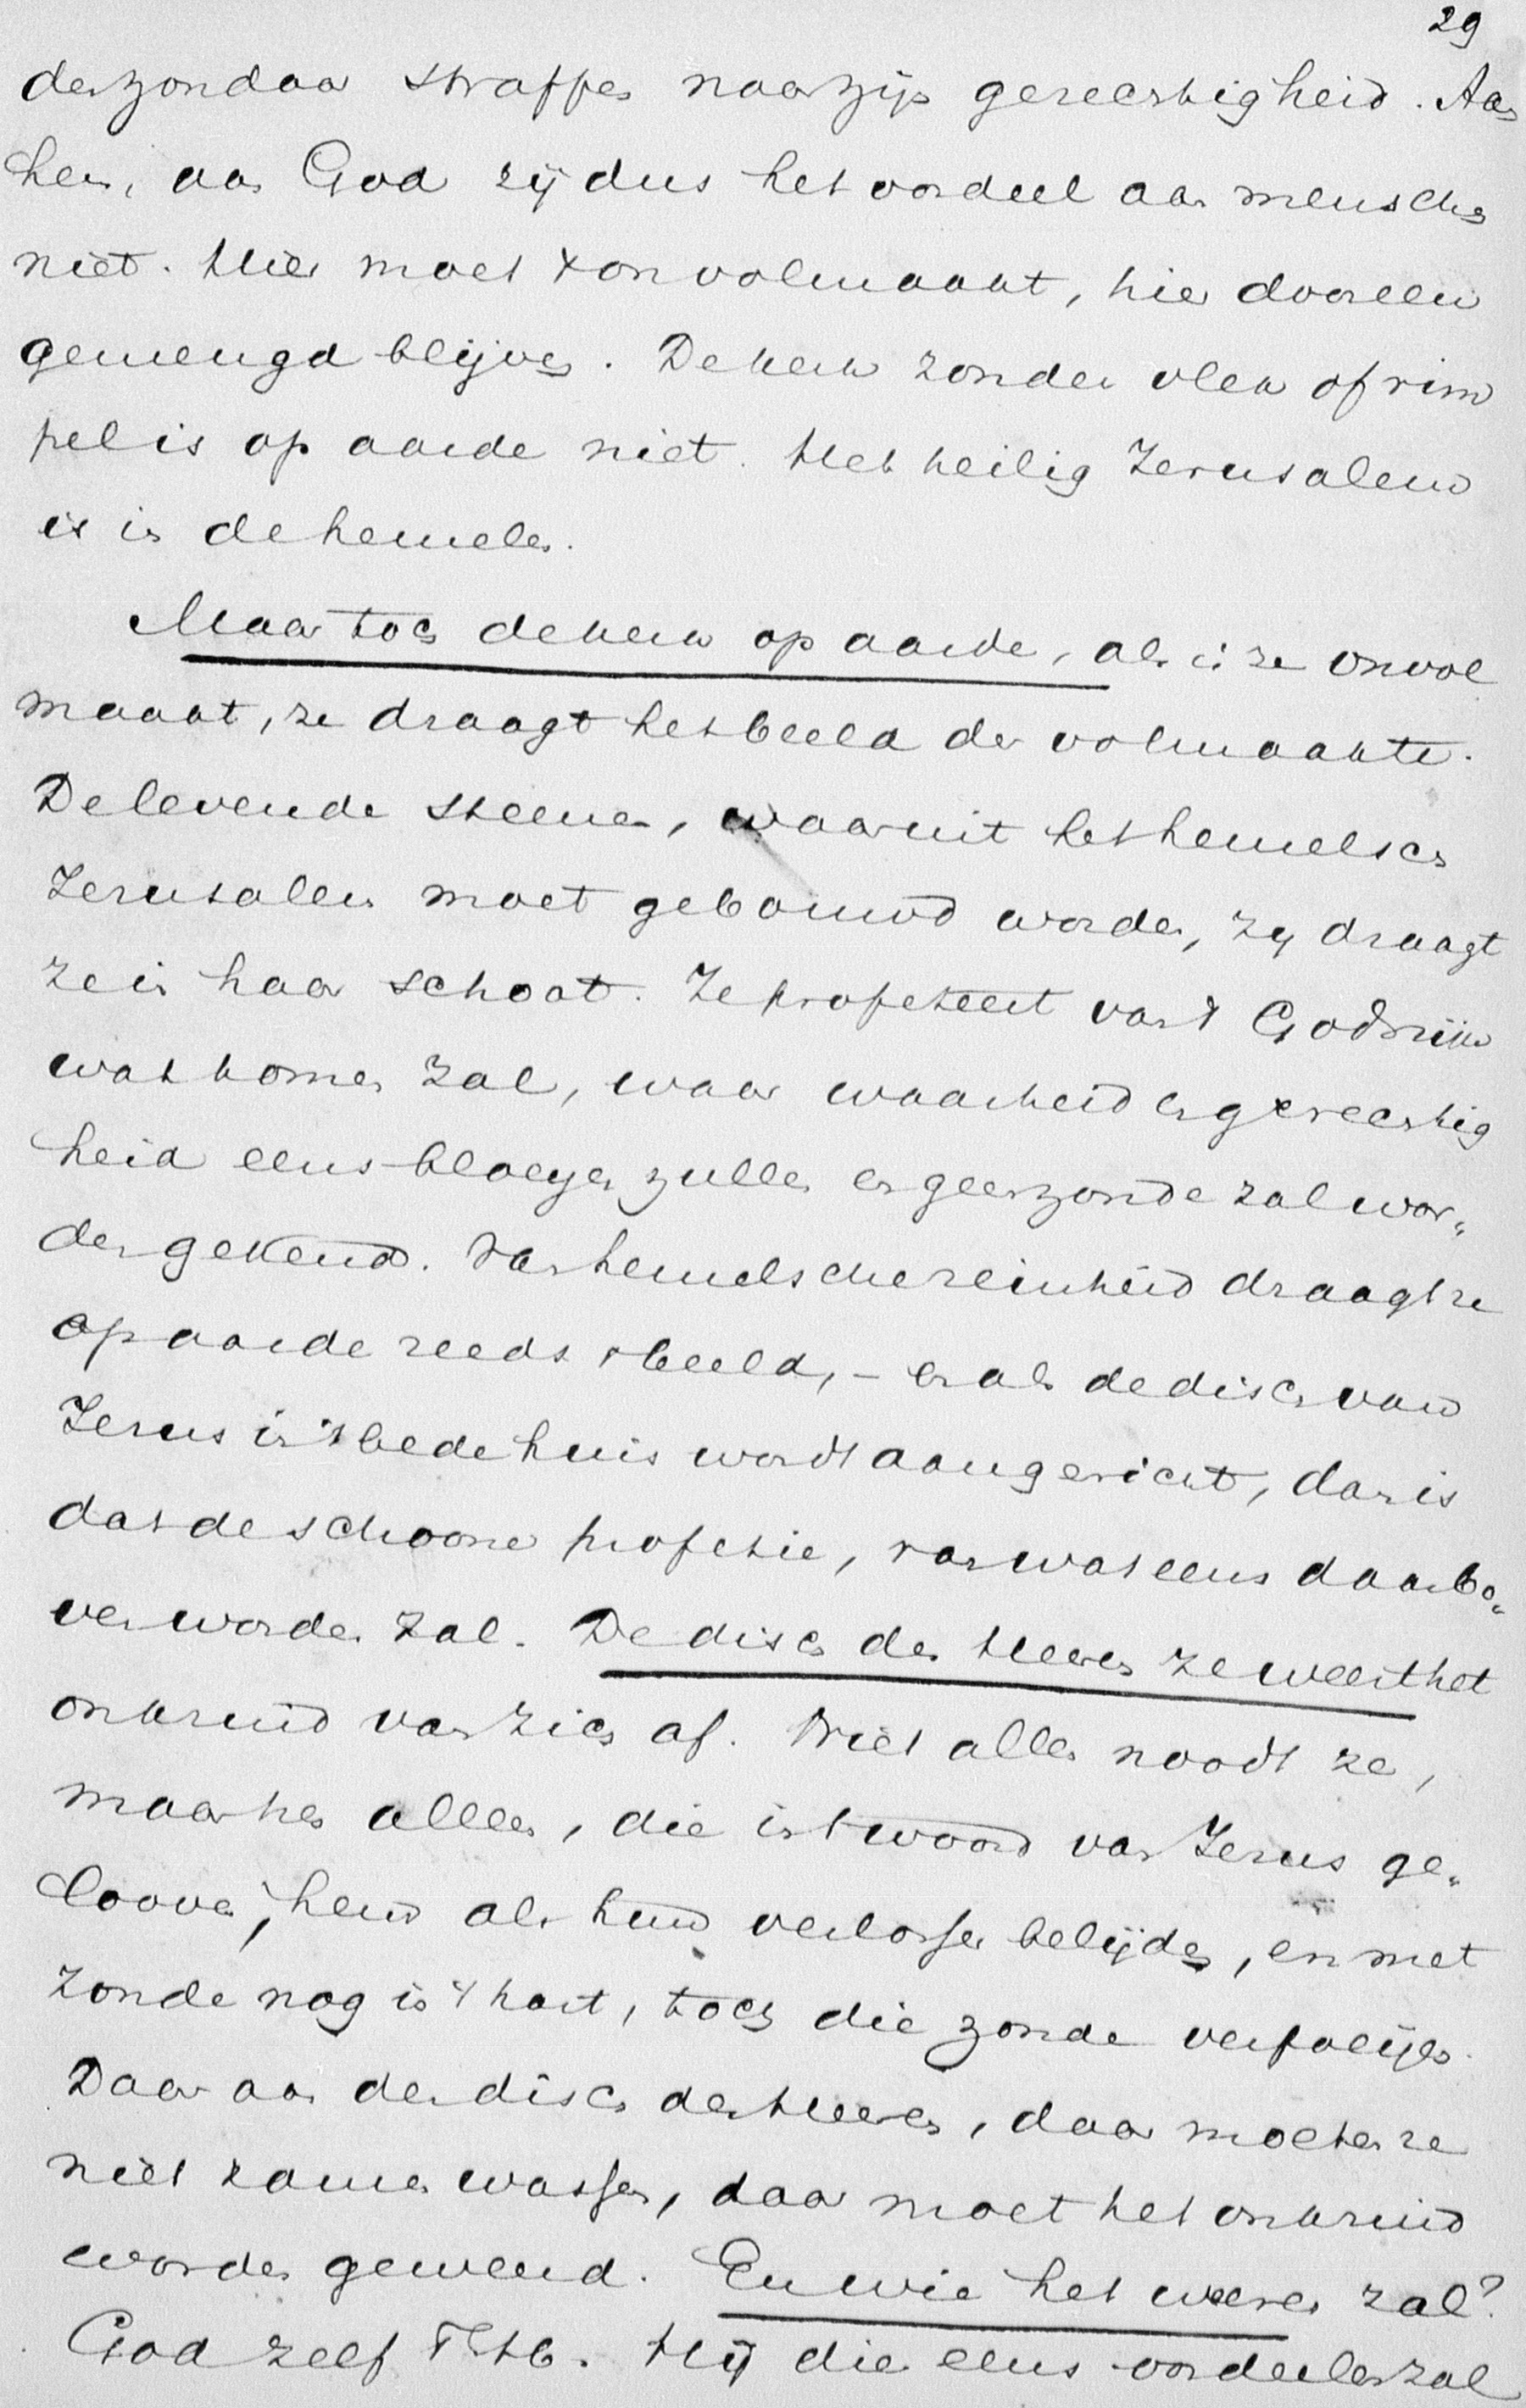 29
den zondaar straffen naar zijn gerechtigheid. Aan
hem, aan God zij dus het oordeel aan menschen
niet. Hier moet 't onvolmaakt, hier dooreen
gemengd blijven. De kerk zonder vlek of rim
pel is op aarde niet. Het heilig Jerusalem
is in de hemelen.
Maar toch de kerk op aarde, al is ze onvol
maakt, ze draagt het beeld der volmaakte.
De levende steenen, waaruit het hemelsch
Jerusalem moet gebouwd worden, zij draagt
ze in haar schoot. Ze profeteert van 't Godsrijk
wat komen zal, waar waarheid en gerechtig
heid eens bloeyen zullen en geen zonde zal wor„
den gekend. Van hemelsche reinheid draagt ze
op aarde reeds 't beeld, – en als de disch van
Jezus in 't bedehuis wordt aangericht, dan is
dat de schoone profetie, van wat eens daarbo„
ven worden zal. De disch des Heeren ze weert het
onkruid van zich af. Niet allen noodt ze,
maar hen allen, die in 't woord van Jezus ge„
looven, hem als hun verlosser belijden, en met
zonde nog in 't hart, toch die zonde verfoeijen.
Daar aan den disch des Heeren, daar moeten ze
niet zamen wassen, daar moet het onkruid
worden geweerd. En wie het weeren zal?
God zelf M. H. Hij die eens oordeelen zal